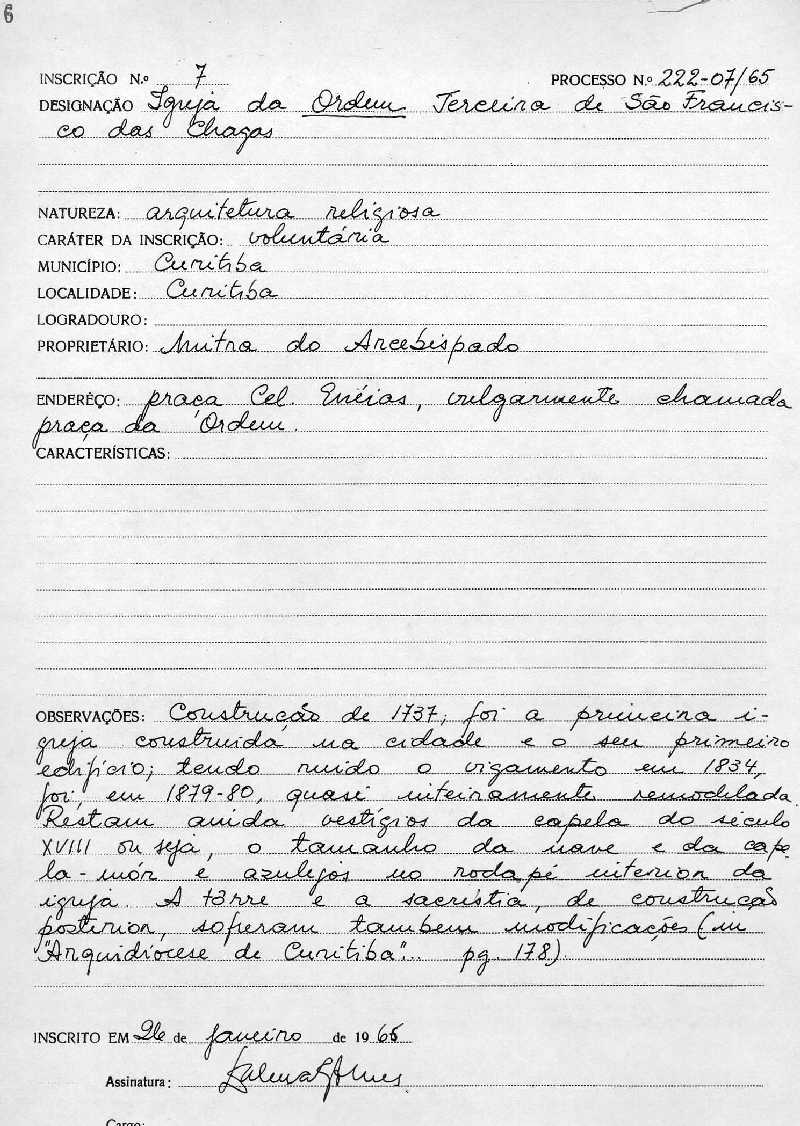 6
INSCRIÇÃO N.º 7 PROCESSO N.º 222-07/65
DESIGNAÇÃO Igreja da Ordem Terceira de São Francis-
co das Chagas
NATUREZA: arquitetura religiosa
CARÁTER DA INSCRIÇÃO: voluntária
MUNICÍPIO: Curitiba
LOCALIDADE: Curitiba
LOGRADOURO:
PROPRIETÁRIO: Mitra do Arcebispado
ENDERÉÇO: praça Cel. Enéias, vulgarmente chamada
praça da Ordem.
CARACTERÍSTICAS:
OBSERVAÇÕES: Construção de 1737; foi a primeira i-
greja construida na cidade e o seu primeiro
edifício; tendo ruido o vigamento em 1834,
foi, em 1879-80, quasi inteiramente remodelada.
Restam ainda vestígios da capela do século
XVIII ou seja, o tamanho da nave e da cape
la-mór e azulejos no rodapé interior da
igreja. A tôrre e a sacristia, de construção
posterior, sofreram tambem modificações (in
"Arquidiocese de Curitiba".. pg. 178).
INSCRITO EM 26 de janeiro de 1966
Assinatura:
Cargo: